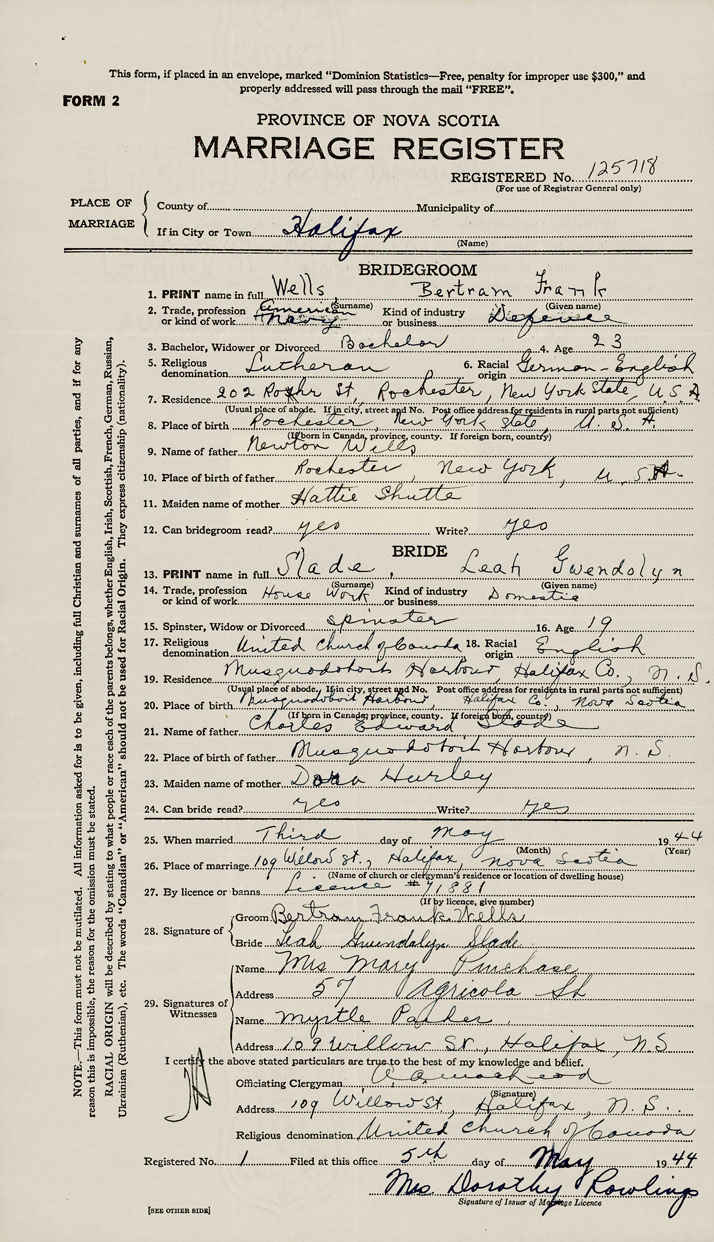 This form, if placed in an envelope, marked "Dominion Statistics—Free, penalty for improper use $300," and
properly addressed will pass through the mail "FREE".
FORM 2
PROVINCE OF NOVA SCOTIA
MARRIAGE REGISTER
REGISTERED No. 125718
(For use of Registrar General only)
PLACE OF MARRIAGE
County of Municipality of
If in City or Town Halifax
(Name)
BRIDEGROOM
1. PRINT name in full Wells Bertram Frank
(Surname) (Given name)
2. Trade, profession or kind of work American Navy Kind of industry or business Defence
3. Bachelor, Widower or Divorced Bachelor 4. Age 23
5. Religious denomination Lutheran 6. Racial origin German-English
7. Residence 202 St, Rochester, New York State, U.S.A
(Usual place of abode. If in city, street and No. Post office address for residents in rural parts not sufficient)
8. Place of birth Rochester, New York State, U. S. A.
(If born in Canada, province, county. If foreign born, country)
9. Name of father Newton Wells
10. Place of birth of father Rochester, New York, U.S.A.
11. Maiden name of mother Hattie Shutte
12. Can bridegroom read? yes Write? yes
BRIDE
13. PRINT name in full Slade, Leah Gwendolyn
(Surname) (Given name)
14. Trade, profession or kind of work House Work Kind of industry or business Domestic
15. Spinster, Widow or Divorced spinster 16. Age 19
17. Religious denomination United Church of Canada 18. Racial origin English
19. Residence Musquodoboit Harbour, Halifax Co., N.S.
(Usual place of abode. If in city, street and No. Post office address for residents in rural parts not sufficient)
20. Place of birth Musquodoboit Harbour, Halifax Co., Nova Scotia
(If born in Canada, province, county. If foreign born, country)
21. Name of father Charles Edward Slade
22. Place of birth of father Musquodoboit Harbour, N.S.
23. Maiden name of mother Dora Hurley
24. Can bride read? yes Write? yes
25. When married Third day of May 1944
(Month) (Year)
26. Place of marriage 109 Willow St., Halifax, Nova Scotia
(Name of church or clergyman's residence or location of dwelling house)
27. By licence or banns License #71881
(If by licence, give number)
28. Signature of
Groom Bertram Frank Wells
Bride Leah Gwendalyn Slade
29. Signatures of Witnesses
Name Mrs Mary Purchase
Address 57 Agricola St
Name Myrtle Parker
Address 109 Willow St, Halifax, N.S
I certify the above stated particulars are true to the best of my knowledge and belief.
Officiating Clergyman
(Signature)
Address 109 Willow St, Halifax, N.S.
Religious denomination United Church of Canada
Registered No. 1 Filed at this office 5th day of May 1944
Mrs. Dorothy Rowlings
Signature of Issuer of Marriage Licence
[SEE OTHER SIDE]
NOTE.—This form must not be mutilated. All information asked for is to be given, including full Christian and surnames of all parties, and if for any
reason this is impossible, the reason for the omission must be stated.
RACIAL ORIGIN will be described by stating to what people or race each of the parents belongs, whether English, Irish, Scottish, French, German, Russian,
Ukrainian (Ruthenian), etc. The words "Canadian" or "American" should not be used for Racial Origin. They express citizenship (nationality).